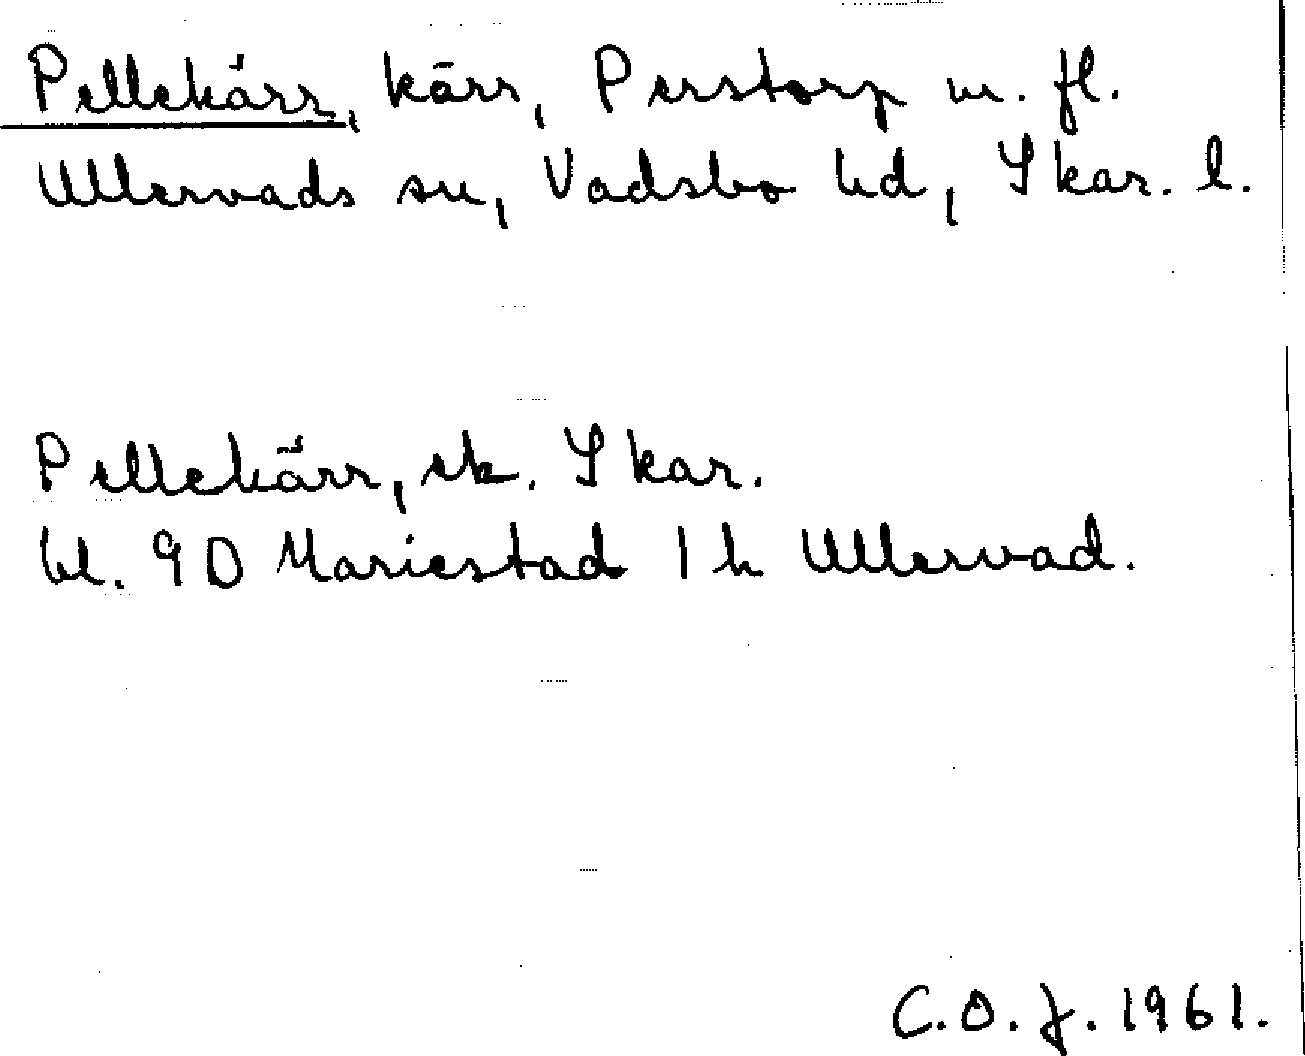 Pellekärr, kärr, Perstorp m. fl.
Ullervads sn, Vadsbo hd, Skar. l.
Pellekärr, ek. Skar.
bl. 9 D Mariestad 1 h Ullervad.
C.O.J. 1961.